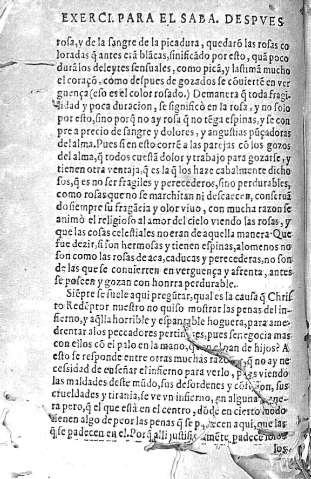 EXERCI. PARA EL SABA. DESPVES
rosa, y de la sangre de la picadura, quedarõ las rosas co
loradas q̃ antes erã blãcas, sinificãdo por esto, quã poco
durã los deleytes sensuales, como picã, y lastimã mucho
el coraçõ. como despues de gozados se cõuiertẽ en ver
guença (eso es el color rosado.) Demanera q̃ toda fragi
lidad y poca duracion, se significò en la rosa, y no solo
por esto, sino porq̃ no ay rosa q̃ no tẽga espinas, y se con
pre a precio de sangre y dolores, y angustias pũçadoras
del alma. Pues si en esto corrẽ a las parejas cõ los gozos
del alma, q̃ todos cuestã dolor y trabajo para gozarse, y
tienen otra ventaja, q̃ es la q̃ los haze cabalmente dicho
sos, q̃ es no ser fragiles y perecederos, sino perdurables,
como rosas que no se marchitan ni descaecen, conseruã
do siempre su fragãcia y olor viuo, con mucha razon se
animò el religioso al amor del cielo viendo las rosas, y
que las cosas celestiales no eran de aquella manera. Que
fue dezir, si son hermosas y tienen espinas, alomenos no
son como las rosas de aca, caducas y perecederas, no son
de las que se conuierten en verguença y afrenta, antes
se poseen y gozan con honrra perdurable.
Siẽpre se suele aqui pregũtar, qual es la causa q̃ Chris
to Redẽptor nuestro no quiso mostrar las penas del in-
fierno, y aq̃lla horrible y espantable hoguera, para ame-
drentar a los peccadores pues se negocia mas
con ellos cõ el palo en la mano, que el pan de hijos? A
esto se responde entre otras muchas razones, q̃ no ay ne
cesidad de enseñar el infierno para verlo, pues viendo
las maldades deste mũdo, sus desordenes y sus
crueldades y tirania, se ve vn infierno, en alguna mane-
ra pero, q̃ el que està en el centro, dõde en cierto modo
tienen algo de peor las penas q̃ se padecen aqui, que las
q̃ se padecen en el. Porq̃ alli justissimamẽte padece
los